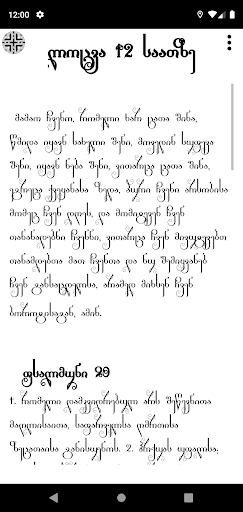 12:00
ლოცვა 12 საათზე
მამაო ჩვენო, რომელი ხარ ცათა შინა,
წმიდა იყავნ სახელი შენი, მოვედინ სუფევა
შენი, იყავნ ნება შენი, ვითარცა ცათა შინა,
ეგრეცა ქვეყანასა ზედა, პური ჩვენი არსობისა
მომეც ჩვენ დღეს, და მომიტევენ ჩვენ
თანანადებნი ჩვენნი, ვითარცა ჩვენ მივუტევებთ
თანამდებთა მათ ჩვენთა და ნუ შემიყვანებ
ჩვენ განსაცდელსა, არამედ მიხსენ ჩვენ
ბოროტისაგან, ამინ.
ფსალმუნი 29
1. რომელი დამკვიდრებულ არს შეწევნითა
მაღლისაითა, საფარველსა ღმრთისა
ზეცათაისა განისუენოს. 2. ჰრქუას უფალსა: